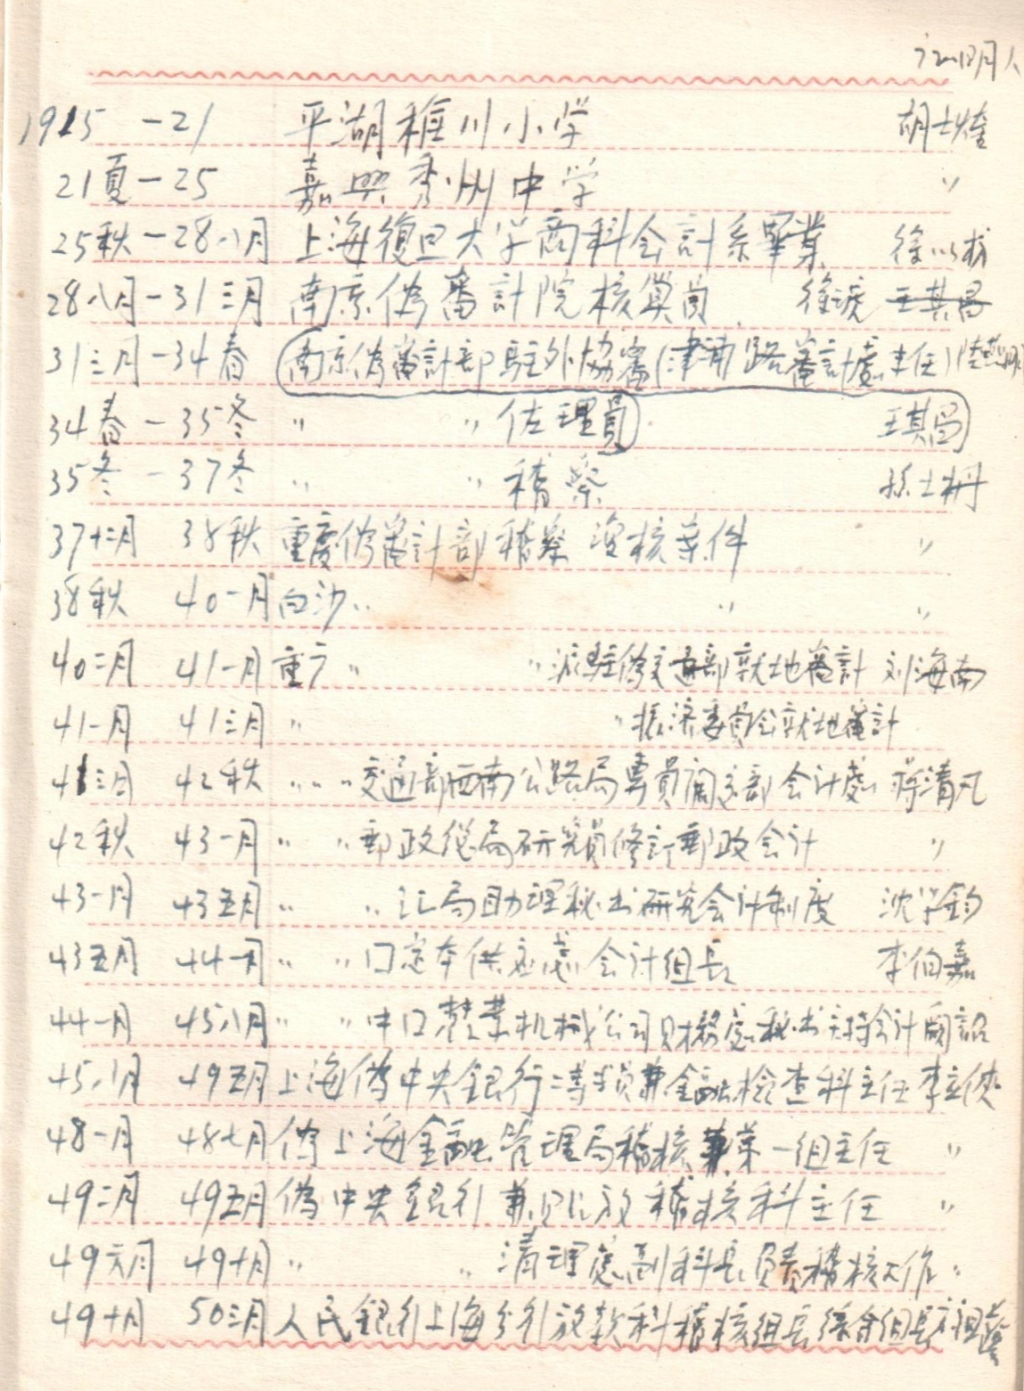 证明人
1915 -21 平湖稚川小学 胡士煃
21夏-25 嘉興秀州中学 〃
25秋-28八月 上海復旦大学商科会計系畢業
28八月-31三月 南京偽審計院核算員
31三月-34春 南京偽審計部駐外協審(津浦路審計處主任)
34春-35冬 〃 〃佐理員 王其昌
35冬-37冬 〃 〃稽察 孫士
37十二月 38秋 重慶偽審計部稽察 案件 〃
38秋 40一月 白沙〃 〃 〃
40二月 41一月 重 〃 〃派駐偽交通部就地審計 刘海南
41一月 41三月 〃 〃振济委員会就地審計
41三月 42秋 〃 〃交通部西南公路局專員 部会计處 蒋清凡
42秋 43一月 〃 〃郵政總局研究員修訂郵政会计 〃
43一月 43五月 〃 〃汇局助理秘书研究会计制度 沈学鈞
43五月 44一月 〃 〃 供应處会计組長 李伯嘉
44一月 45八月 〃 〃中 農業机械公司財務處秘书主持会计
45八月 49五月 上海偽中央銀行 員兼金融檢查科主任 李立俠
48一月 48七月 偽上海金融管理局稽核兼第一組主任 〃
49二月 49五月 偽中央銀行兼 放稽核科主任 〃
49六月 49十月 〃 〃清理處副科長負責稽核工作 〃
49十月 50三月 人民銀行上海分行放款科稽核組長綜合組長